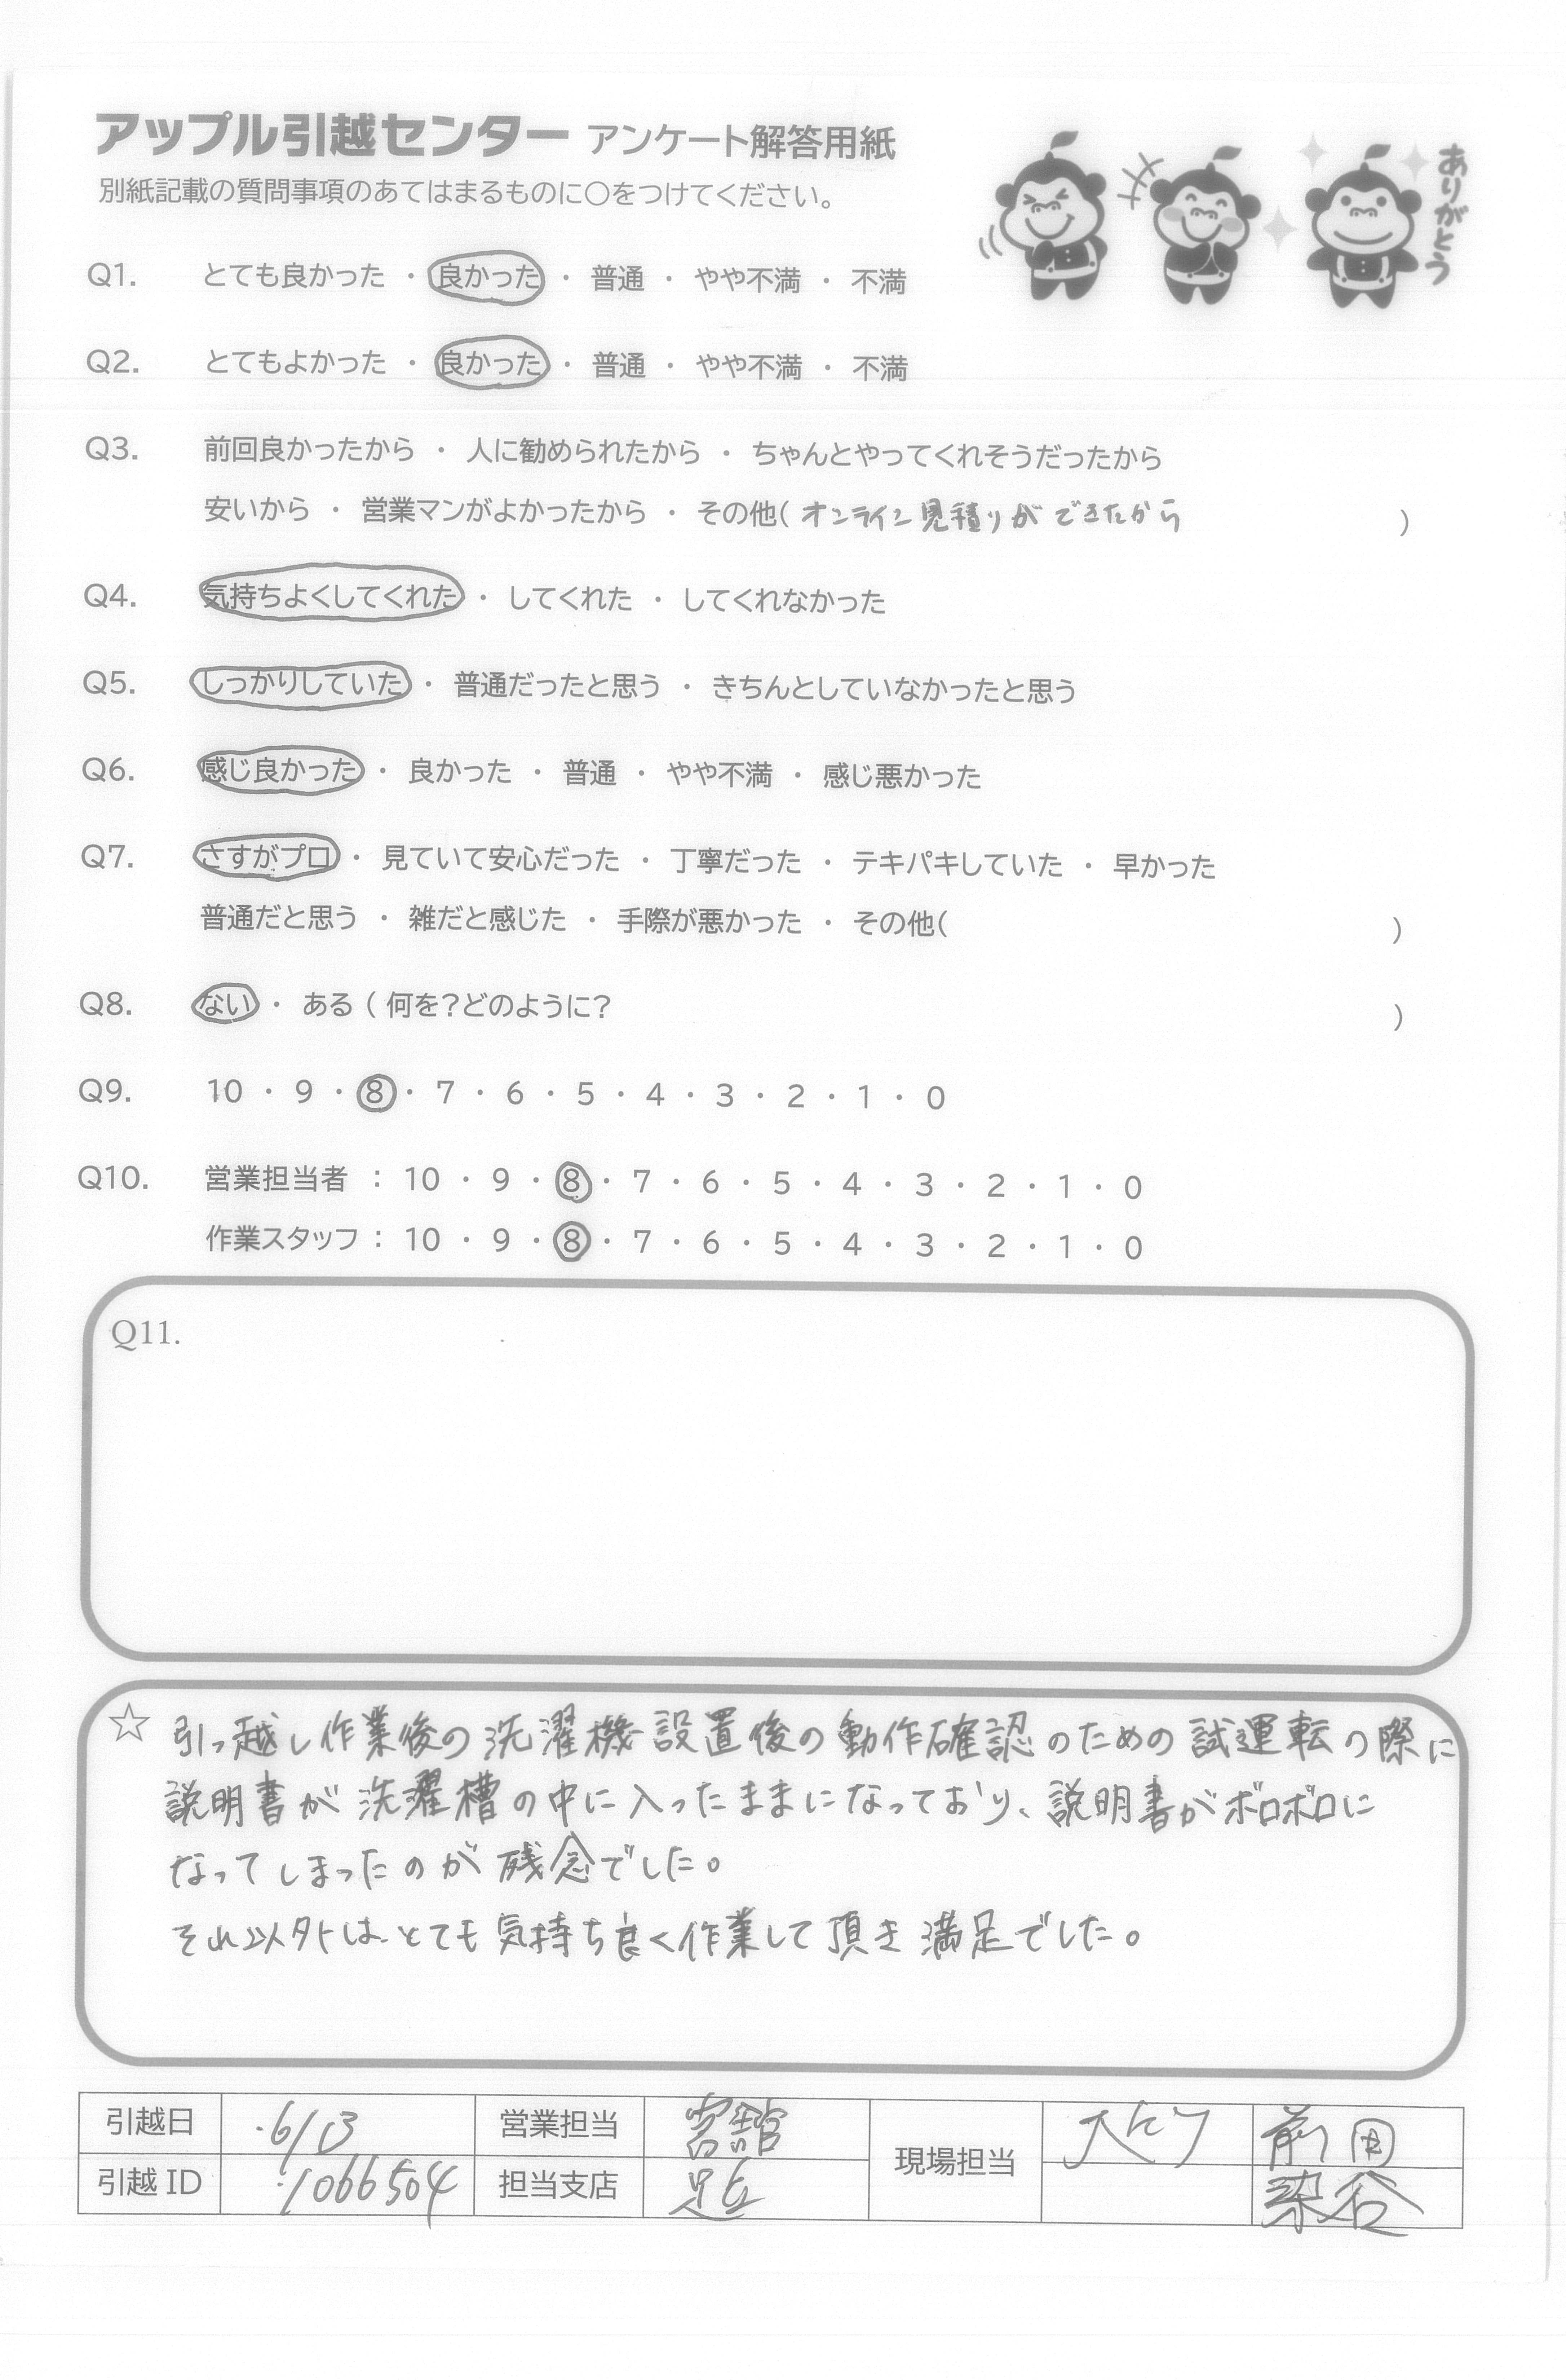 アップル引越センター アンケート解答用紙
別紙記載の質問事項のあてはまるものに○をつけてください。
ありがとう
Q1. とても良かった ・ 良かった ・ 普通 ・ やや不満 ・ 不満
Q2. とてもよかった ・ 良かった ・ 普通 ・ やや不満 ・ 不満
Q3. 前回良かったから ・ 人に勧められたから ・ ちゃんとやってくれそうだったから
安いから ・ 営業マンがよかったから ・ その他( オンライン見積りができたから )
Q4. 気持ちよくしてくれた ・ してくれた ・ してくれなかった
Q5. しっかりしていた ・ 普通だったと思う ・ きちんとしていなかったと思う
Q6. 感じ良かった ・ 良かった ・ 普通 ・ やや不満 ・ 感じ悪かった
Q7. さすがプロ ・ 見ていて安心だった ・ 丁寧だった ・ テキパキしていた ・ 早かった
普通だと思う ・ 雑だと感じた ・ 手際が悪かった ・ その他( )
Q8. ない ・ ある ( 何を?どのように? )
Q9. 10 ・ 9 ・ 8 ・ 7 ・ 6 ・ 5 ・ 4 ・ 3 ・ 2 ・ 1 ・ 0
Q10. 営業担当者 : 10 ・ 9 ・ 8 ・ 7 ・ 6 ・ 5 ・ 4 ・ 3 ・ 2 ・ 1 ・ 0
作業スタッフ : 10 ・ 9 ・ 8 ・ 7 ・ 6 ・ 5 ・ 4 ・ 3 ・ 2 ・ 1 ・ 0
Q11.
☆ 引っ越し作業後の洗濯機設置後の動作確認のための試運転の際に
説明書が洗濯槽の中に入ったままになっており、説明書がボロボロに
なってしまったのが残念でした。
それ以外は、とても気持ち良く作業して頂き満足でした。
引越日 6/13 営業担当 現場担当 前田
引越ID 1066504 担当支店 足立 染谷